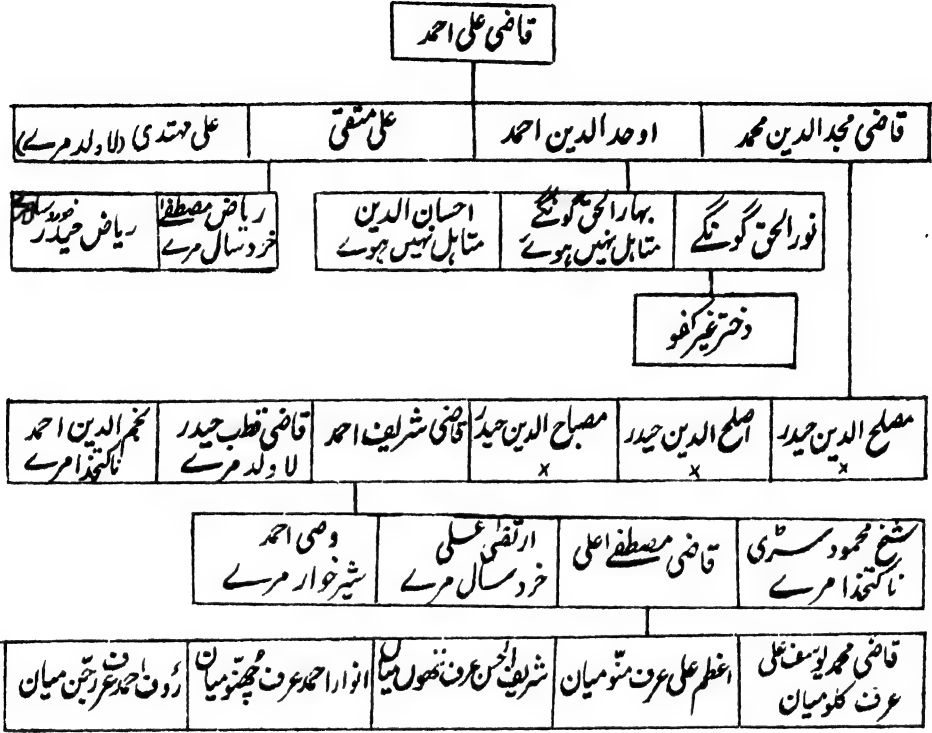 قاضی علی احمد
قاضی مجد الدین محمد
اوحد الدین احمد
علی متقی
علی مہتدی (لاولد مرے)
نور الحق گونگے
بہار الحق گونگے
متاہل نہیں ہوے
احسان الدین
متاہل نہیں ہوے
ریاض مصطفےٰ
خرد سال مرے
ریاض حیدر
دختر غیر کفو
مصلح الدین حیدر
×
اصلح الدین حیدر
×
مصباح الدین حیدر
×
قاضی شریف احمد
قاضی قطب حیدر
لا ولد مرے
نجم الدین احمد
ناکتخدا مرے
شیخ محمود سٹری
ناکتخدا مرے
قاضی مصطفےٰ علی
ارتضیٰ علی
خرد سال مرے
وصی احمد
شیر خوار مرے
قاضی محمد یوسف علی
عرف کلو میان
اعظم علی عرف منّو میان
شریف الحسن عرف ننھوں میاں
انوار احمد عرف چھنّو میان
رؤف احمد عرف جبّن میان